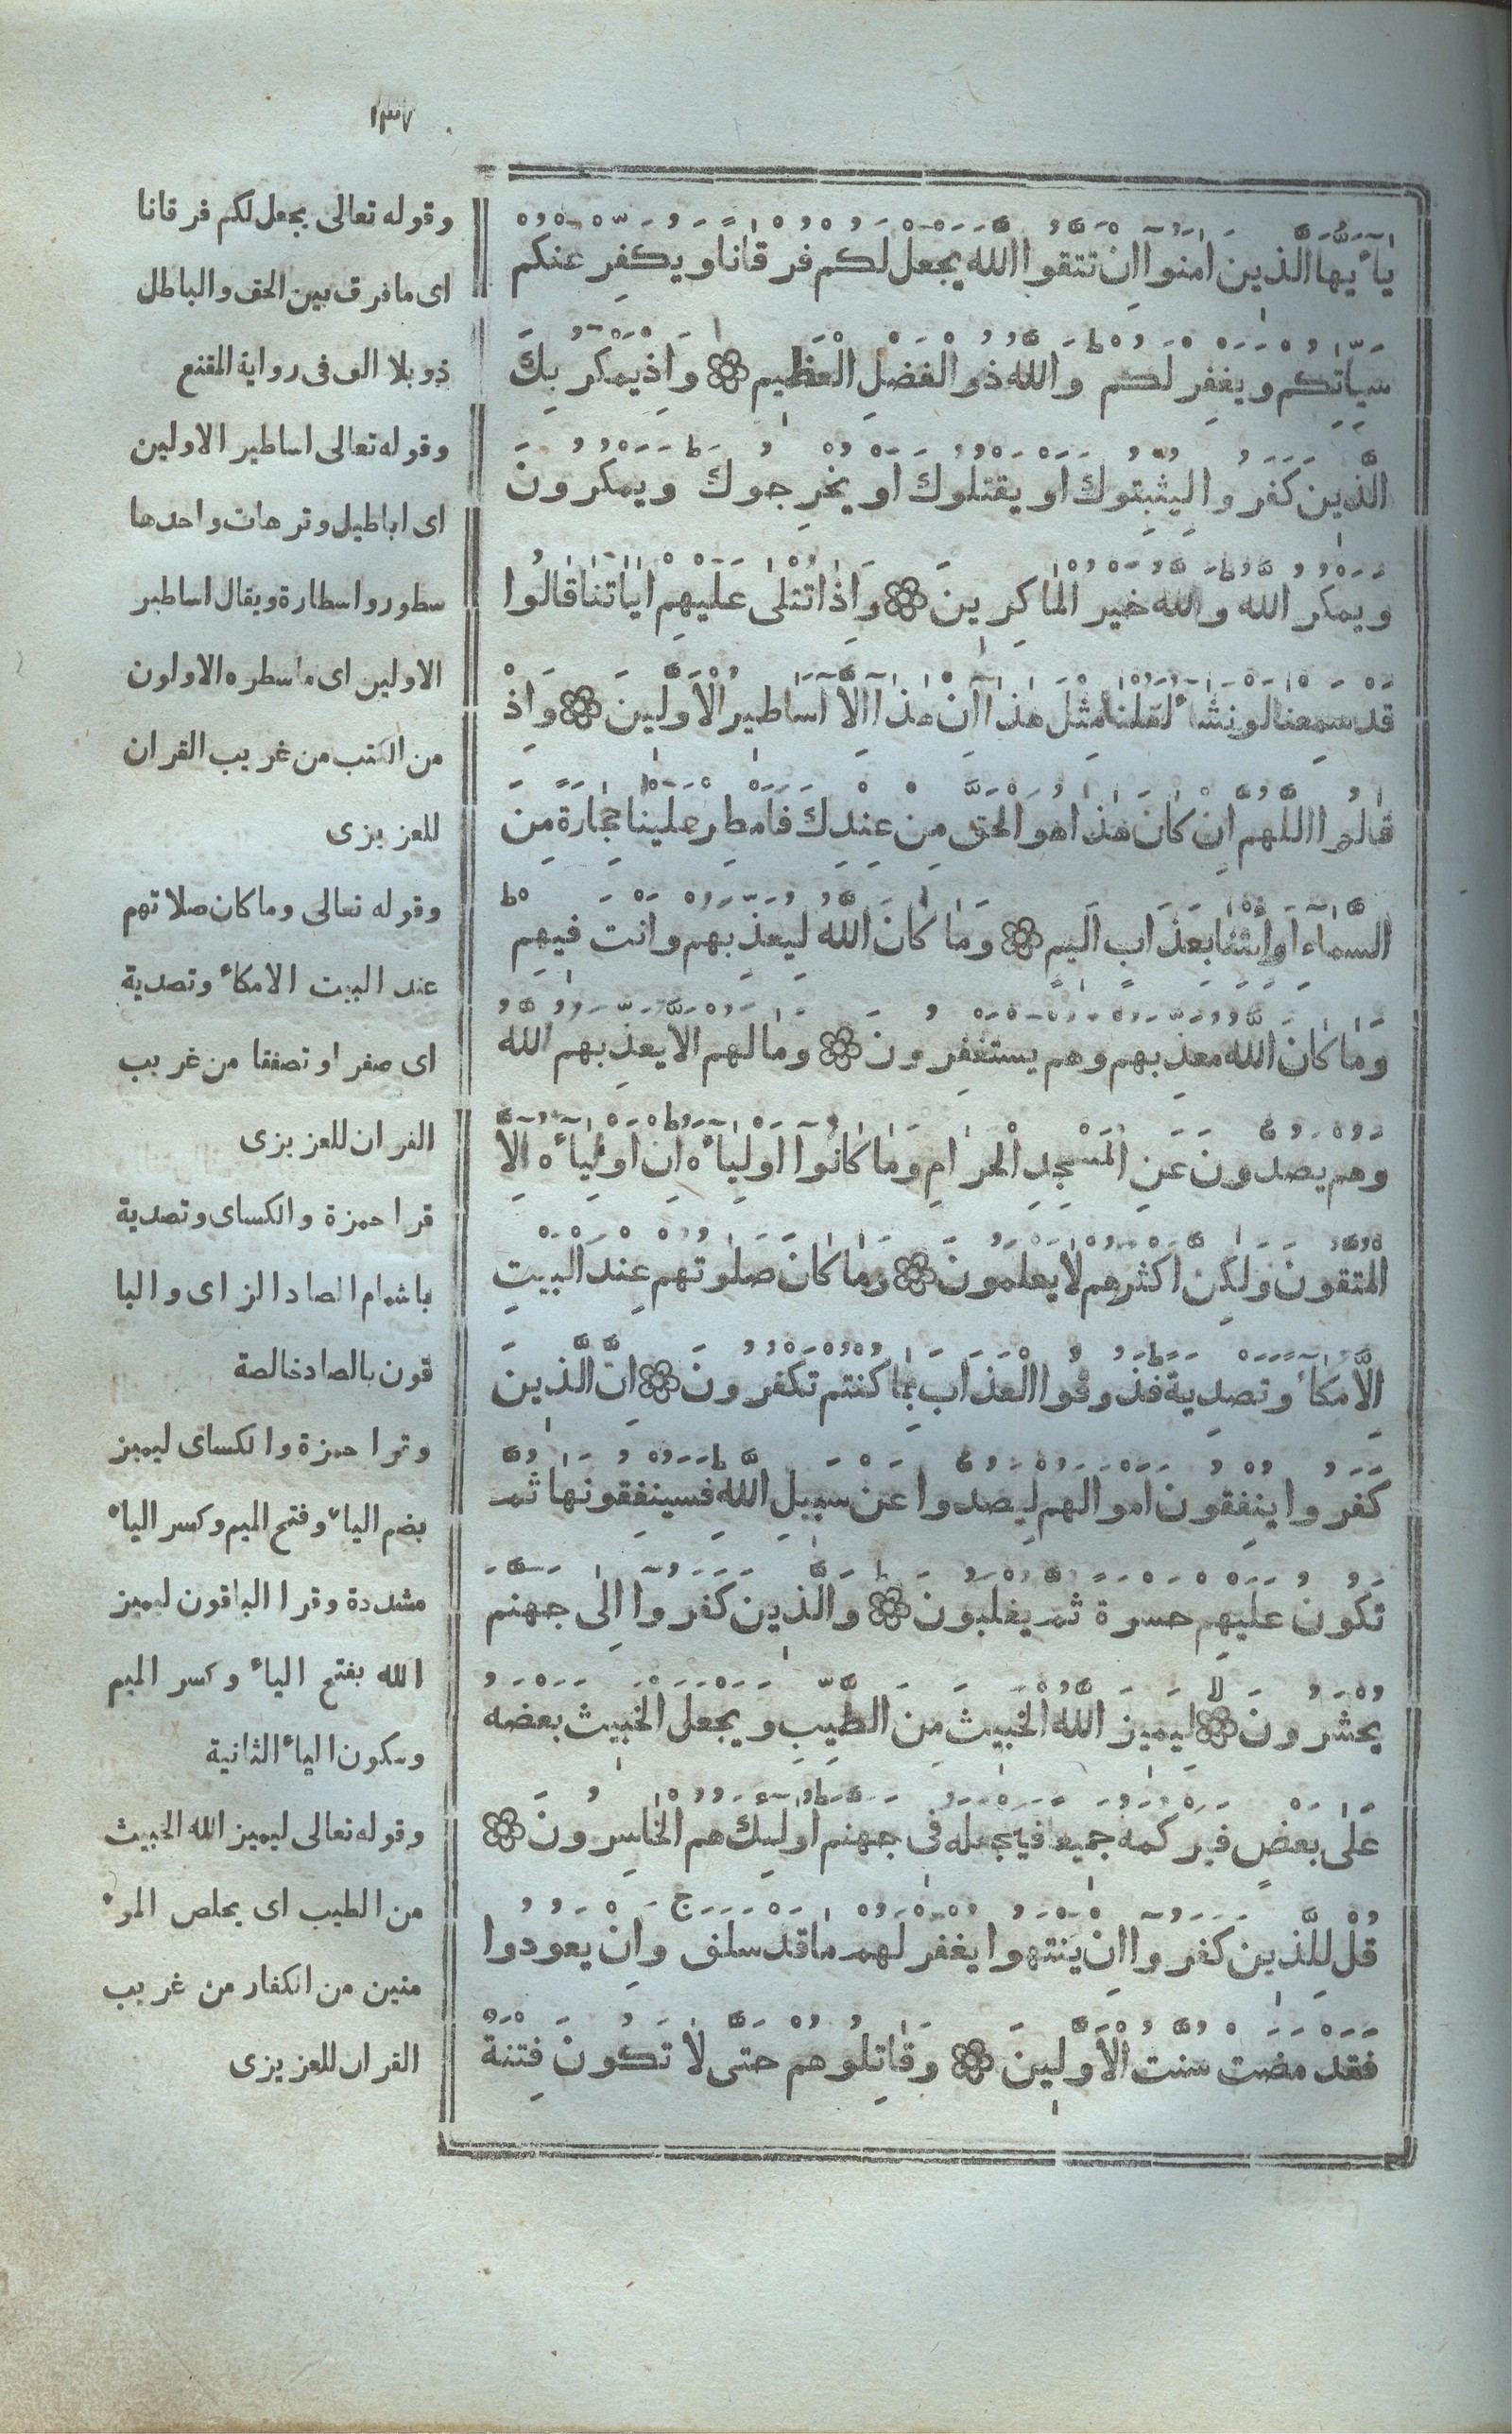 ١٣٧
يَآ ءَيُّهَا الَّذِينَ اٰمَنُوٓا اِنْ تَتَّقُوا اللّٰهَ يَجْعَلْ لَكُمْ فُرْقَانًا وَيُكَفِّرْ عَنْكُمْ
سَيِّاٰتِكُمْ وَيَغْفِرْ لَكُمْ ط وَاللّٰهُ ذُو الْفَضْلِ الْعَظِيمِ ۞ وَاِذْ يَمْكُرُ بِكَ
الَّذِينَ كَفَرُوا لِيُثْبِتُوكَ اَوْ يَقْتُلُوكَ اَوْ يُخْرِجُوكَ ط وَيَمْكُرُونَ
وَيَمْكُرُ اللّٰهُ ط وَاللّٰهُ خَيْرُ الْمَاكِرِينَ ۞ وَاِذَا تُتْلٰى عَلَيْهِمْ اٰيَاتُنَا قَالُوا
قَدْ سَمِعْنَا لَوْ نَشَآءُ لَقُلْنَا مِثْلَ هٰذَآ اِنْ هٰذَآ اِلَّآ اَسَاطِيرُ الْاَوَّلِينَ ۞ وَاِذْ
قَالُوا اللّٰهُمَّ اِنْ كَانَ هٰذَا هُوَ الْحَقَّ مِنْ عِنْدِكَ فَاَمْطِرْ عَلَيْنَا حِجَارَةً مِنَ
السَّمَآءِ اَوِ ائْتِنَا بِعَذَابٍ اَلِيمٍ ۞ وَمَا كَانَ اللّٰهُ لِيُعَذِّبَهُمْ وَاَنْتَ فِيهِمْ ط
وَمَا كَانَ اللّٰهُ مُعَذِّبَهُمْ وَهُمْ يَسْتَغْفِرُونَ ۞ وَمَا لَهُمْ اَلَّا يُعَذِّبَهُمُ اللّٰهُ
وَهُمْ يَصُدُّونَ عَنِ الْمَسْجِدِ الْحَرَامِ وَمَا كَانُوٓا اَوْلِيَآءَهُ ط اِنْ اَوْلِيَآءُهُٓ اِلَّا
الْمُتَّقُونَ وَلٰكِنَّ اَكْثَرَهُمْ لَا يَعْلَمُونَ ۞ وَمَا كَانَ صَلٰوتُهُمْ عِنْدَ الْبَيْتِ
اِلَّا مُكَآءً وَتَصْدِيَةً ط فَذُوقُوا الْعَذَابَ بِمَا كُنْتُمْ تَكْفُرُونَ ۞ اِنَّ الَّذِينَ
كَفَرُوا يُنْفِقُونَ اَمْوَالَهُمْ لِيَصُدُّوا عَنْ سَبِيلِ اللّٰهِ ط فَسَيُنْفِقُونَهَا ثُمَّ
تَكُونُ عَلَيْهِمْ حَسْرَةً ثُمَّ يُغْلَبُونَ ط ۞ وَالَّذِينَ كَفَرُوٓا اِلٰى جَهَنَّمَ
يُحْشَرُونَ لا ۞ لِيَمِيزَ اللّٰهُ الْخَبِيثَ مِنَ الطَّيِّبِ وَيَجْعَلَ الْخَبِيثَ بَعْضَهُ
عَلٰى بَعْضٍ فَيَرْكُمَهُ جَمِيعًا فَيَجْعَلَهُ فِى جَهَنَّمَ ط اُولٰٓئِكَ هُمُ الْخَاسِرُونَ ۞
قُلْ لِلَّذِينَ كَفَرُوٓا اِنْ يَنْتَهُوا يُغْفَرْ لَهُمْ مَا قَدْ سَلَفَ ج وَاِنْ يَعُودُوا
فَقَدْ مَضَتْ سُنَّتُ الْاَوَّلِينَ ۞ وَقَاتِلُوهُمْ حَتّٰى لَا تَكُونَ فِتْنَةٌ
وقوله تعالى يجعل لكم فرقانا
اى ما فرق بين الحق والباطل
ذو بلا الف فى رواية المقنع
وقوله تعالى اساطير الاولين
اى اباطيل وترهات واحدها
سطور واسطارة ويقال اساطير
الاولين اى ما سطره الاولون
من الكتب من غريب القران
للعزيزى
وقوله تعالى وما كان صلاتهم
عند البيت الا مكاء وتصدية
اى صفرا وتصفقا من غريب
القران للعزيزى
قرا حمزة والكساى وتصدية
باشمام الصاد الزاى والبا
قون بالصاد خالصة
وقرا حمزة والكساى ليميز
بضم الياء وفتح الميم وكسر الياء
مشددة وقرا الباقون ليميز
الله بفتح الياء وكسر الميم
وسكون الياء الثانية
وقوله تعالى ليميز الله الخبيث
من الطيب اى يخلص المؤ
منين من الكفار من غريب
القران للعزيزى